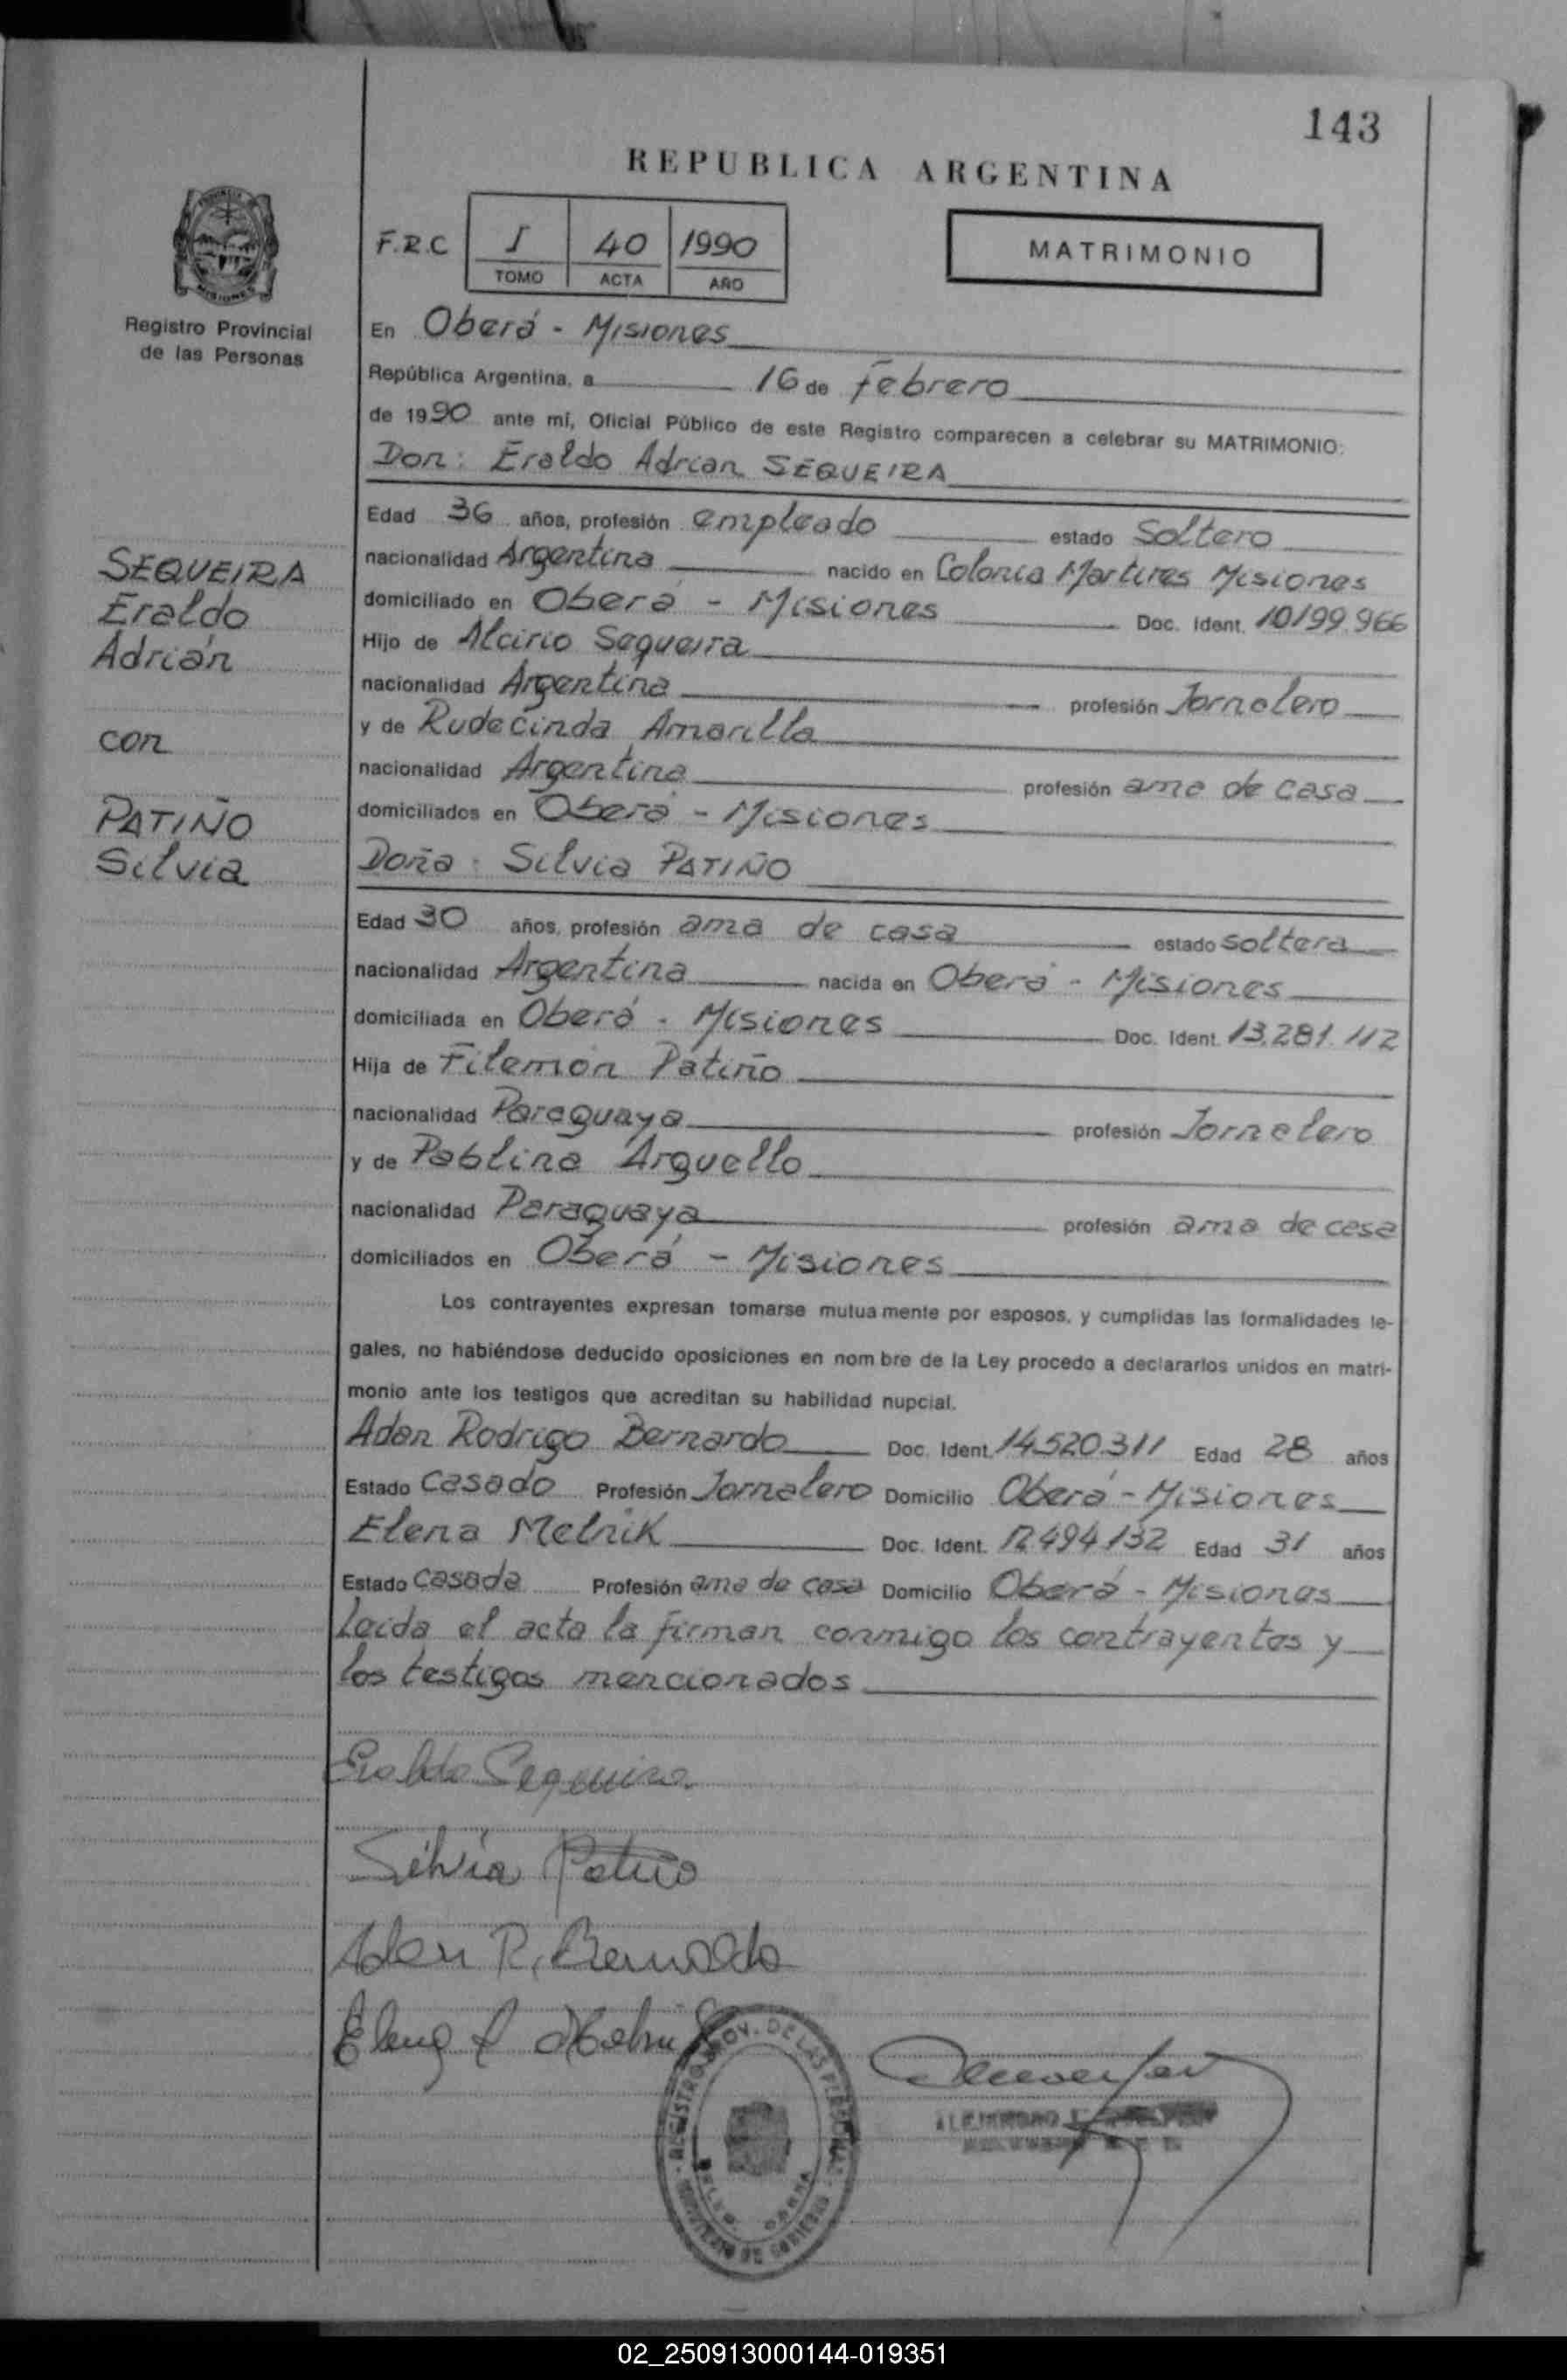 143
REPUBLICA ARGENTINA
F.R.C
I 40 1990
TOMO ACTA AÑO
MATRIMONIO
Registro Provincial
de las Personas
En Oberá - Misiones
República Argentina, a 16 de Febrero
de 1990 ante mí, Oficial Público de este Registro comparecen a celebrar su MATRIMONIO:
Don: Eraldo Adrian SEQUEIRA
Edad 36 años, profesión empleado estado Soltero
nacionalidad Argentina nacido en Colonia Martires Misiones
domiciliado en Oberá - Misiones Doc. Ident. 10199.966
Hijo de Alcirio Sequeira
nacionalidad Argentina profesión Jornalero
y de Rudecinda Amarilla
nacionalidad Argentina profesión ama de casa
domiciliados en Oberá - Misiones
SEQUEIRA
Eraldo
Adrián
con
PATIÑO
Silvia
Doña: Silvia PATIÑO
Edad 30 años, profesión ama de casa estado soltera
nacionalidad Argentina nacida en Oberá - Misiones
domiciliada en Oberá - Misiones Doc. Ident. 13.281.112
Hija de Filemón Patiño
nacionalidad Paraguaya profesión Jornalero
y de Pablina Arguello
nacionalidad Paraguaya profesión ama de casa
domiciliados en Oberá - Misiones
Los contrayentes expresan tomarse mutuamente por esposos, y cumplidas las formalidades le-
gales, no habiéndose deducido oposiciones en nombre de la Ley procedo a declararlos unidos en matri-
monio ante los testigos que acreditan su habilidad nupcial.
Adan Rodrigo Bernardo Doc. Ident. 14.520.311 Edad 28 años
Estado Casado Profesión Jornalero Domicilio Oberá - Misiones
Elena Melnik Doc. Ident. 12.494.132 Edad 31 años
Estado Casada Profesión ama de casa Domicilio Oberá - Misiones
Leída el acta la firman conmigo los contrayentes y
los testigos mencionados
Eraldo Sequeira
Silvia Patiño
Adan R. Bernardo
Elena Melnik
REGISTRO PROV. DE LAS PERSONAS
MINISTERIO DE GOBIERNO
ALEJANDRO
02_250913000144-019351